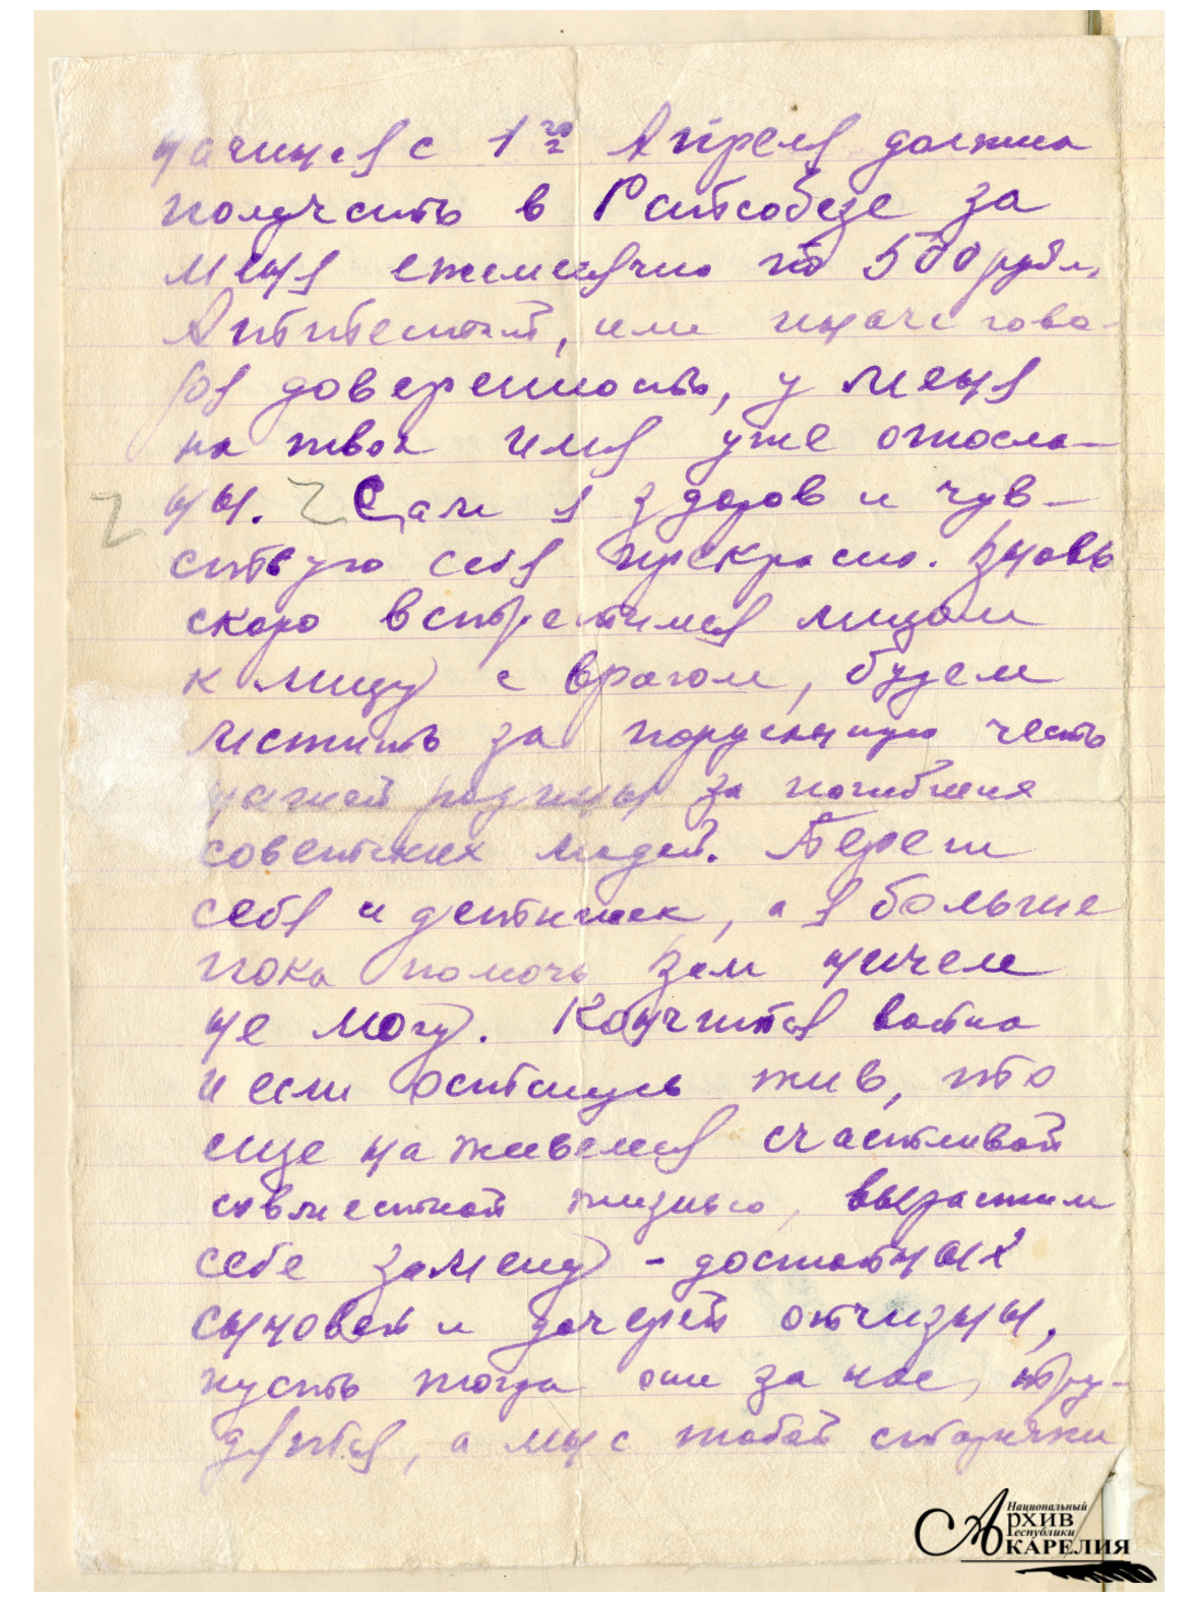 начиная с 1го Апреля должна
получать в Райсобезе за
меня ежемесячно по 500 рубл.
Аттестат, или иначе гово-
ря доверенность, у меня
на твое имя уже отосла-
ны. Сам я здоров и чув-
ствую себя прекрасно. Вновь
скоро встретимся лицом
к лицу с врагом, будем
мстить за поруганную честь
нашей родины за погибших
советских людей. Береги
себя и детишек, а я больше
пока помочь Вам ничем
не могу. Кончится война
и если останусь жив, то
еще наживемся счастливой
совместной жизнью, вырастим
себе замену - достойных
сыновей и дочерей отчизны,
пусть тогда они за нас, тру-
дятся, а мы с тобой старички
Национальный
Архив
Республики
Карелия